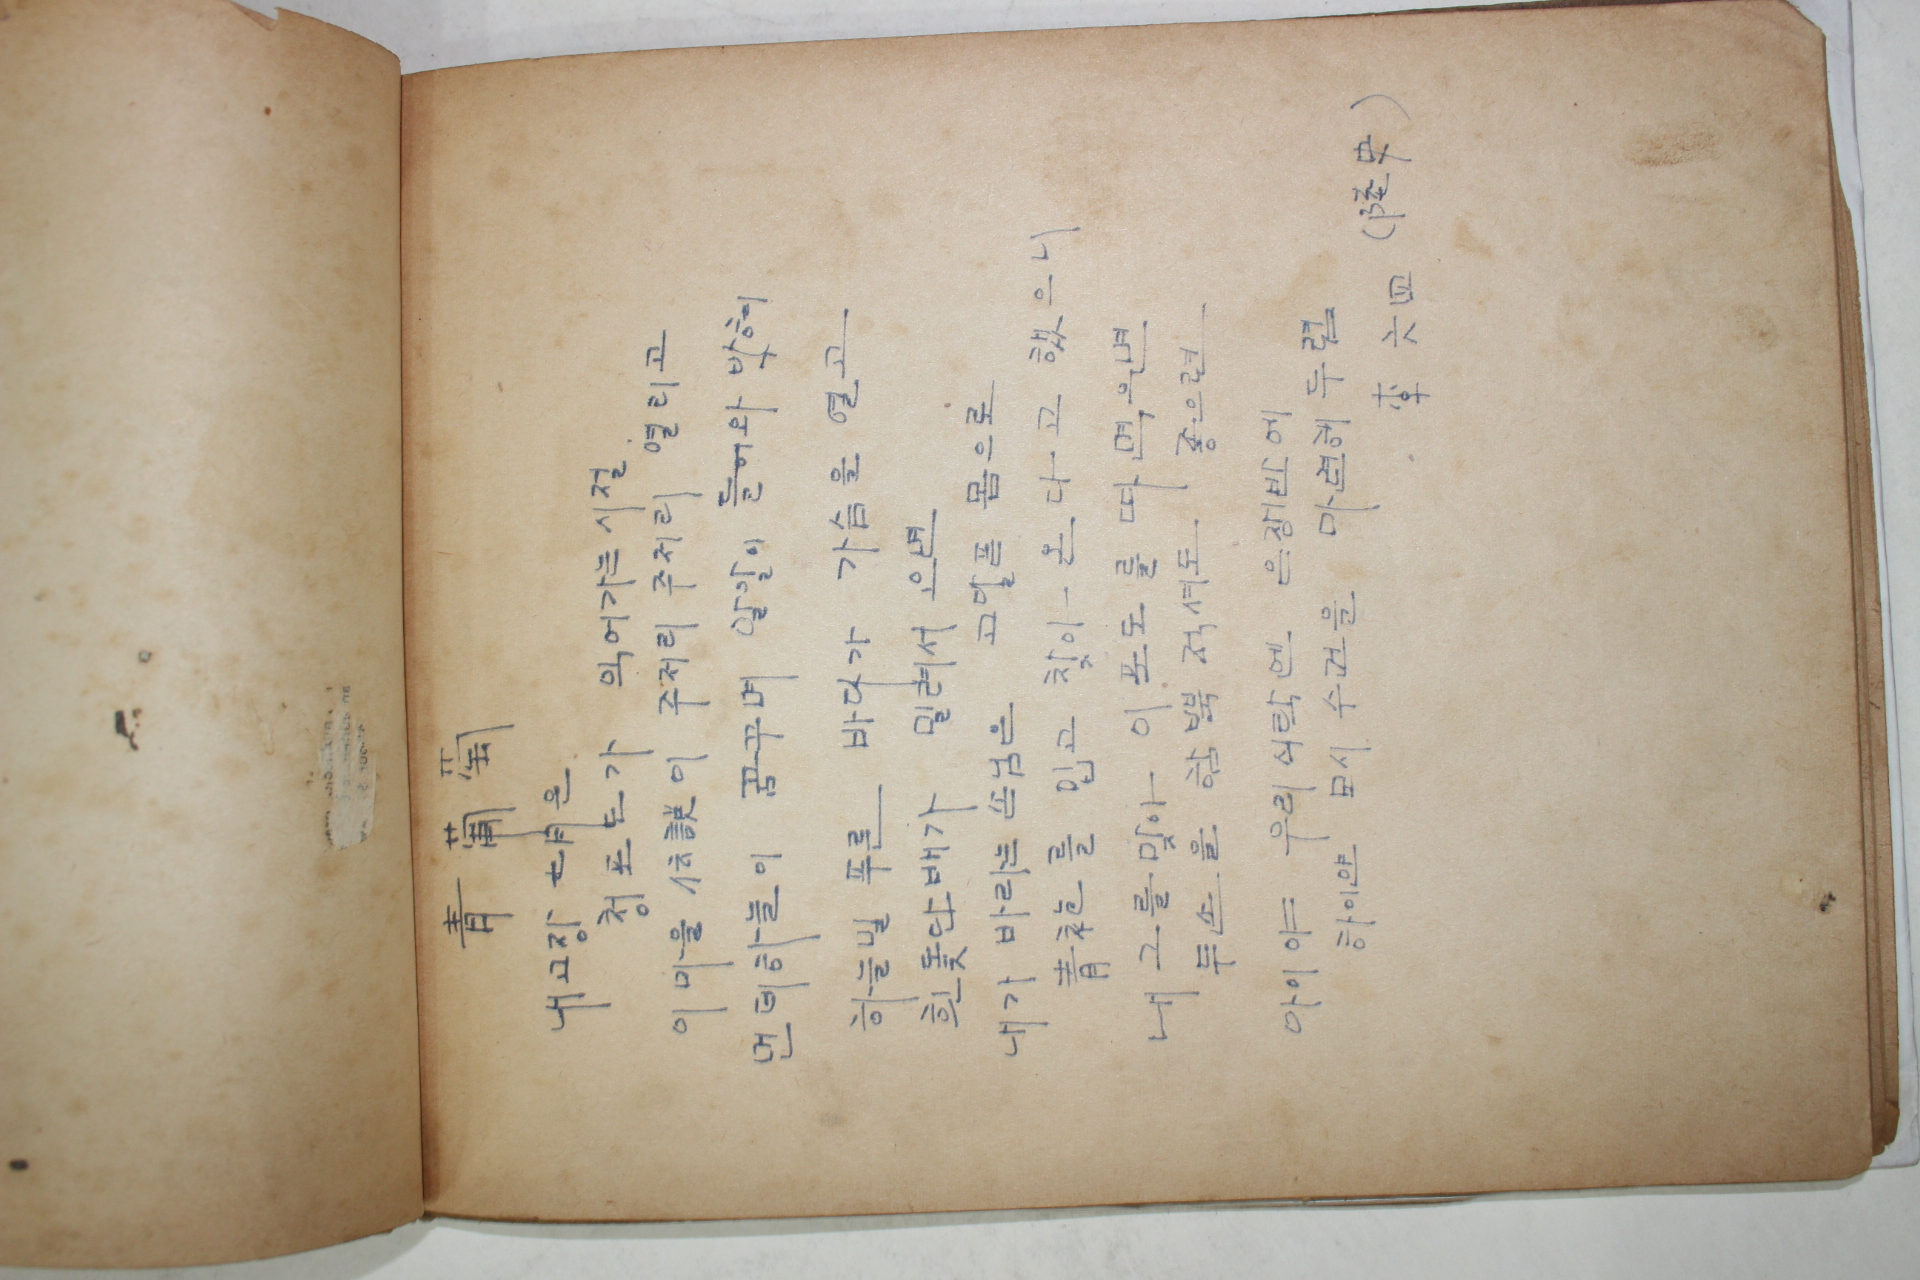 靑葡萄
내고장 七月은
청포도가 익어가는 시절
이 마을 傳說이 주저리 주저리 열리고
먼데 하늘이 꿈꾸며 알알이 들어와 박혀
하늘밑 푸른 바다가 가슴을 열고
흰 돛단배가 밀려서 오면
내가 바라는 손님은 고달픈 몸으로
靑袍를 입고 찾아 온다고 했으니
내 그를 맞아 이 포도를 따 먹으면
두손을 함뿍 적셔도 좋으련
아이야 우리 식탁엔 은쟁반에
하이얀 모시 수건을 마련해 두렴
李 六